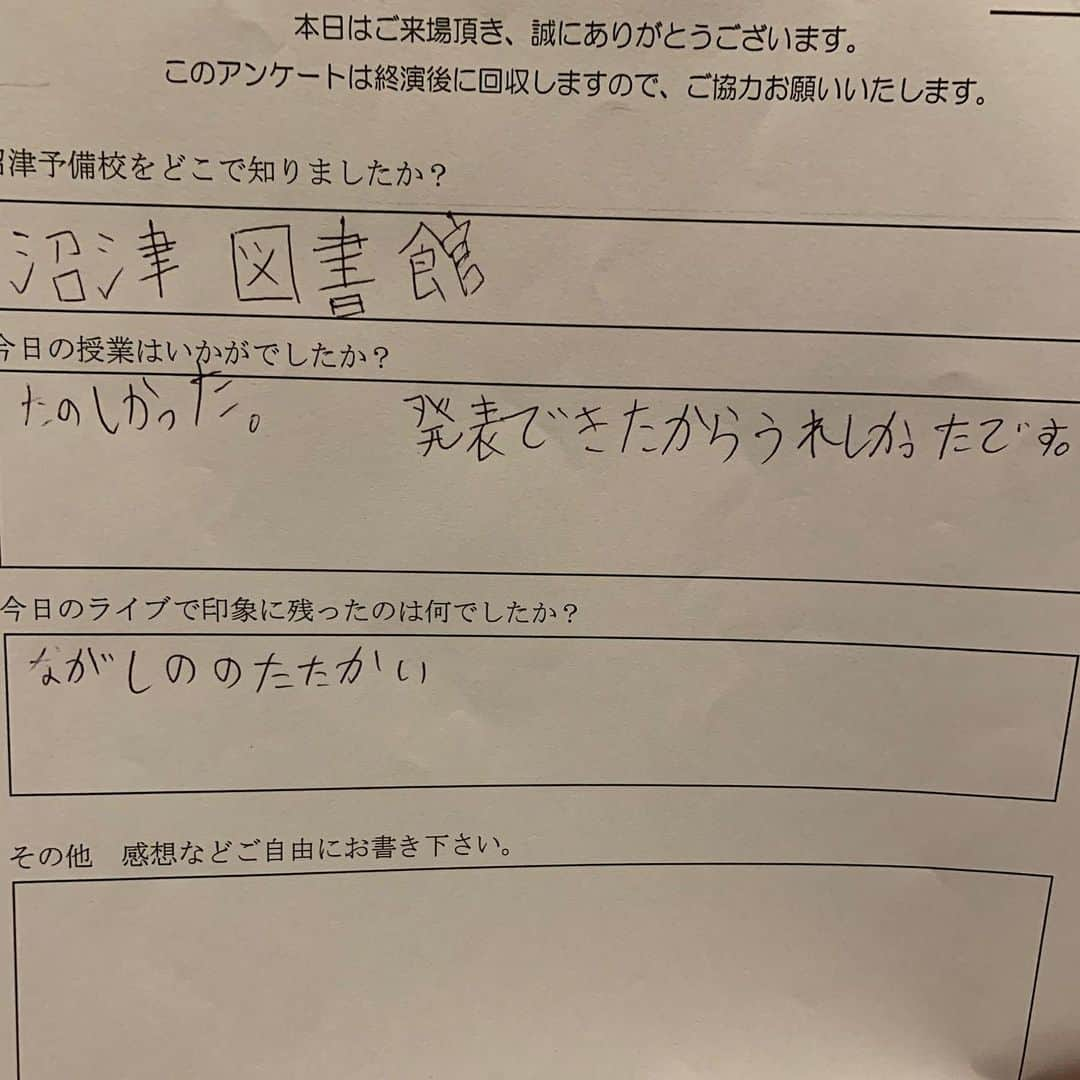 本日はご来場頂き、誠にありがとうございます。
このアンケートは終演後に回収しますので、ご協力お願いいたします。
沼津予備校をどこで知りましたか？
沼津 図書館
今日の授業はいかがでしたか？
たのしかった。 発表できたからうれしかったです。
今日のライブで印象に残ったのは何でしたか？
ながしののたたかい
その他　感想などご自由にお書き下さい。